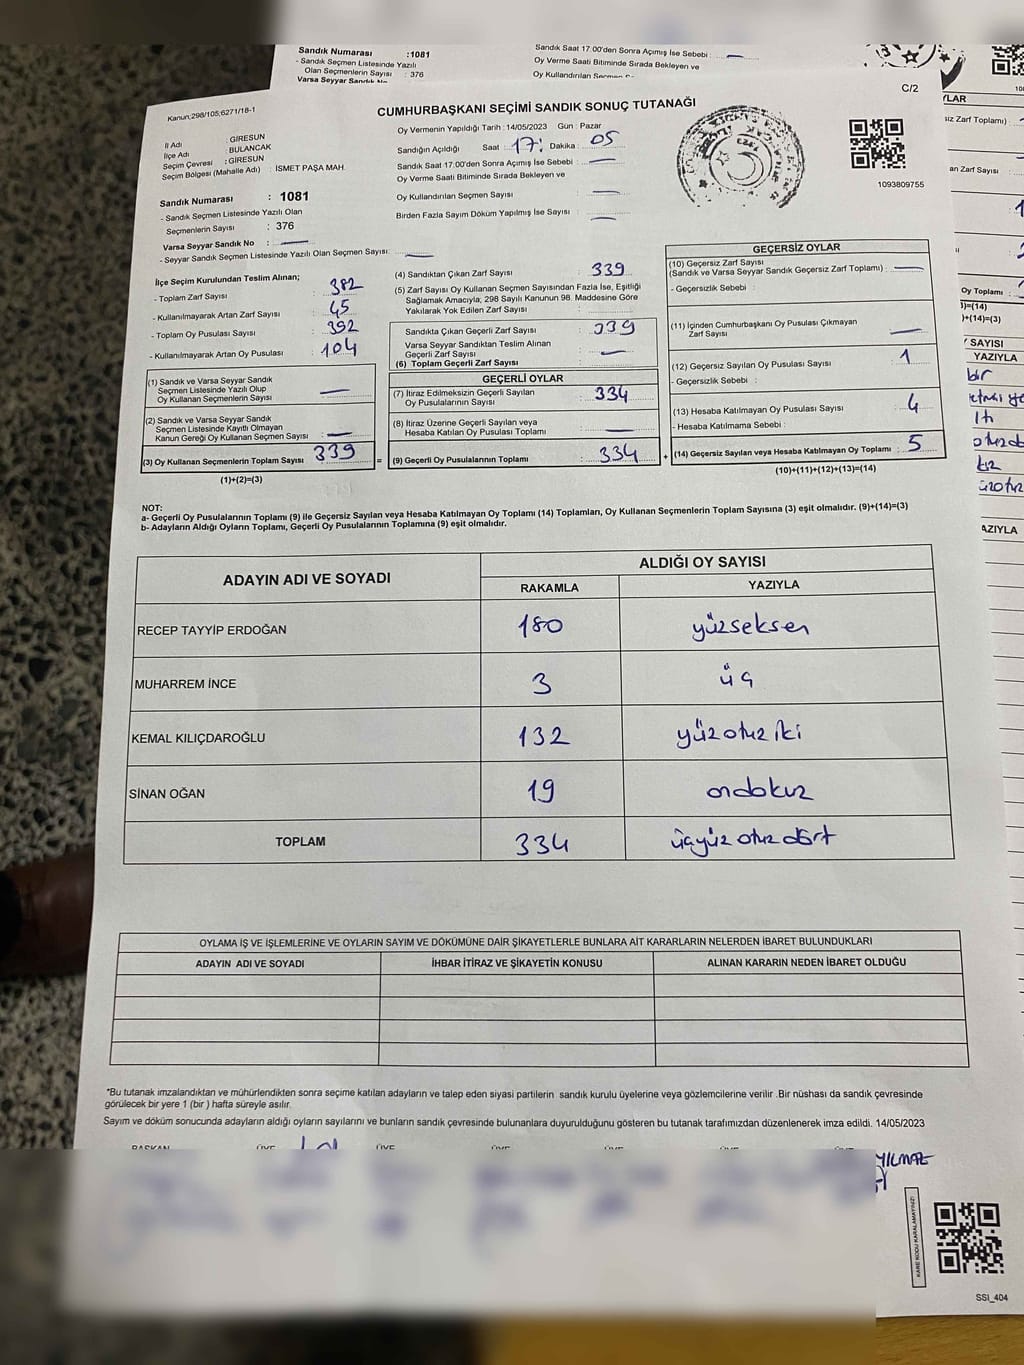 Sandık Numarası :1081
- Sandık Seçmen Listesinde Yazılı
Olan Seçmenlerin Sayısı : 376
Varsa Seyyar Sandık No
Sandık Saat 17.00'den Sonra Açımış İse Sebebi : —
Oy Verme Saati Bitiminde Sırada Bekleyen ve
Oy Kullandırılan Seçmen
C/2
Kanun;298/105;6271/18-1
CUMHURBAŞKANI SEÇİMİ SANDIK SONUÇ TUTANAĞI
İl Adı : GİRESUN
İlçe Adı : BULANCAK
Seçim Çevresi : GİRESUN
Seçim Bölgesi (Mahalle Adı) : İSMET PAŞA MAH.
Oy Vermenin Yapıldığı Tarih : 14/05/2023 Gün : Pazar
Sandığın Açıldığı Saat : 17: Dakika : 05
Sandık Saat 17.00'den Sonra Açımış İse Sebebi : —
Oy Verme Saati Bitiminde Sırada Bekleyen ve
Oy Kullandırılan Seçmen Sayısı : —
Birden Fazla Sayım Döküm Yapılmış İse Sayısı : —
1093809755
Sandık Numarası : 1081
- Sandık Seçmen Listesinde Yazılı Olan
Seçmenlerin Sayısı : 376
Varsa Seyyar Sandık No : —
- Seyyar Sandık Seçmen Listesinde Yazılı Olan Seçmen Sayısı: —
İlçe Seçim Kurulundan Teslim Alınan;
- Toplam Zarf Sayısı : 382
- Kullanılmayarak Artan Zarf Sayısı : 45
- Toplam Oy Pusulası Sayısı : 392
- Kullanılmayarak Artan Oy Pusulası : 104
(1) Sandık ve Varsa Seyyar Sandık
Seçmen Listesinde Yazılı Olup
Oy Kullanan Seçmenlerin Sayısı : —
(2) Sandık ve Varsa Seyyar Sandık
Seçmen Listesinde Kayıtlı Olmayan
Kanun Gereği Oy Kullanan Seçmen Sayısı : —
(3) Oy Kullanan Seçmenlerin Toplam Sayısı : 339
(1)+(2)=(3)
=
(4) Sandıktan Çıkan Zarf Sayısı : 339
(5) Zarf Sayısı Oy Kullanan Seçmen Sayısından Fazla İse, Eşitliği
Sağlamak Amacıyla; 298 Sayılı Kanunun 98. Maddesine Göre
Yakılarak Yok Edilen Zarf Sayısı :
Sandıkta Çıkan Geçerli Zarf Sayısı : 339
Varsa Seyyar Sandıktan Teslim Alınan
Geçerli Zarf Sayısı : —
(6) Toplam Geçerli Zarf Sayısı
GEÇERLİ OYLAR
(7) İtiraz Edilmeksizin Geçerli Sayılan
Oy Pusulalarının Sayısı : 334
(8) İtiraz Üzerine Geçerli Sayılan veya
Hesaba Katılan Oy Pusulası Toplamı : —
(9) Geçerli Oy Pusulalarının Toplamı : 334
+
GEÇERSİZ OYLAR
(10) Geçersiz Zarf Sayısı
(Sandık ve Varsa Seyyar Sandık Geçersiz Zarf Toplamı) : —
- Geçersizlik Sebebi :
(11) İçinden Cumhurbaşkanı Oy Pusulası Çıkmayan
Zarf Sayısı : —
(12) Geçersiz Sayılan Oy Pusulası Sayısı : 1
- Geçersizlik Sebebi :
(13) Hesaba Katılmayan Oy Pusulası Sayısı : 4
- Hesaba Katılmama Sebebi :
(14) Geçersiz Sayılan veya Hesaba Katılmayan Oy Toplamı : 5
(10)+(11)+(12)+(13)=(14)
NOT:
a- Geçerli Oy Pusulalarının Toplamı (9) ile Geçersiz Sayılan veya Hesaba Katılmayan Oy Toplamı (14) Toplamları, Oy Kullanan Seçmenlerin Toplam Sayısına (3) eşit olmalıdır. (9)+(14)=(3)
b- Adayların Aldığı Oyların Toplamı, Geçerli Oy Pusulalarının Toplamına (9) eşit olmalıdır.
ADAYIN ADI VE SOYADI
ALDIĞI OY SAYISI
RAKAMLA YAZIYLA
RECEP TAYYİP ERDOĞAN 180 yüzseksen
MUHARREM İNCE 3 üç
KEMAL KILIÇDAROĞLU 132 yüzotuz iki
SİNAN OĞAN 19 ondokuz
TOPLAM 334 üçyüz otuz dört
OYLAMA İŞ VE İŞLEMLERİNE VE OYLARIN SAYIM VE DÖKÜMÜNE DAİR ŞİKAYETLERLE BUNLARA AİT KARARLARIN NELERDEN İBARET BULUNDUKLARI
ADAYIN ADI VE SOYADI İHBAR İTİRAZ VE ŞİKAYETİN KONUSU ALINAN KARARIN NEDEN İBARET OLDUĞU
*Bu tutanak imzalandıktan ve mühürlendikten sonra seçime katılan adayların ve talep eden siyasi partilerin sandık kurulu üyelerine veya gözlemcilerine verilir .Bir nüshası da sandık çevresinde
görülecek bir yere 1 (bir ) hafta süreyle asılır.
Sayım ve döküm sonucunda adayların aldığı oyların sayılarını ve bunların sandık çevresinde bulunanlara duyurulduğunu gösteren bu tutanak tarafımızdan düzenlenerek imza edildi. 14/05/2023
BAŞKAN ÜYE ÜYE ÜYE ÜYE ÜYE
YILMAZ
KARE KODU KARALAMAYINIZ!
SSİ_404
YLAR
siz Zarf Toplamı) :
an Zarf Sayısı :
Oy Toplamı :
)=(14)
)+(14)=(3)
Y SAYISI
YAZIYLA
bir
kız
AZIYLA